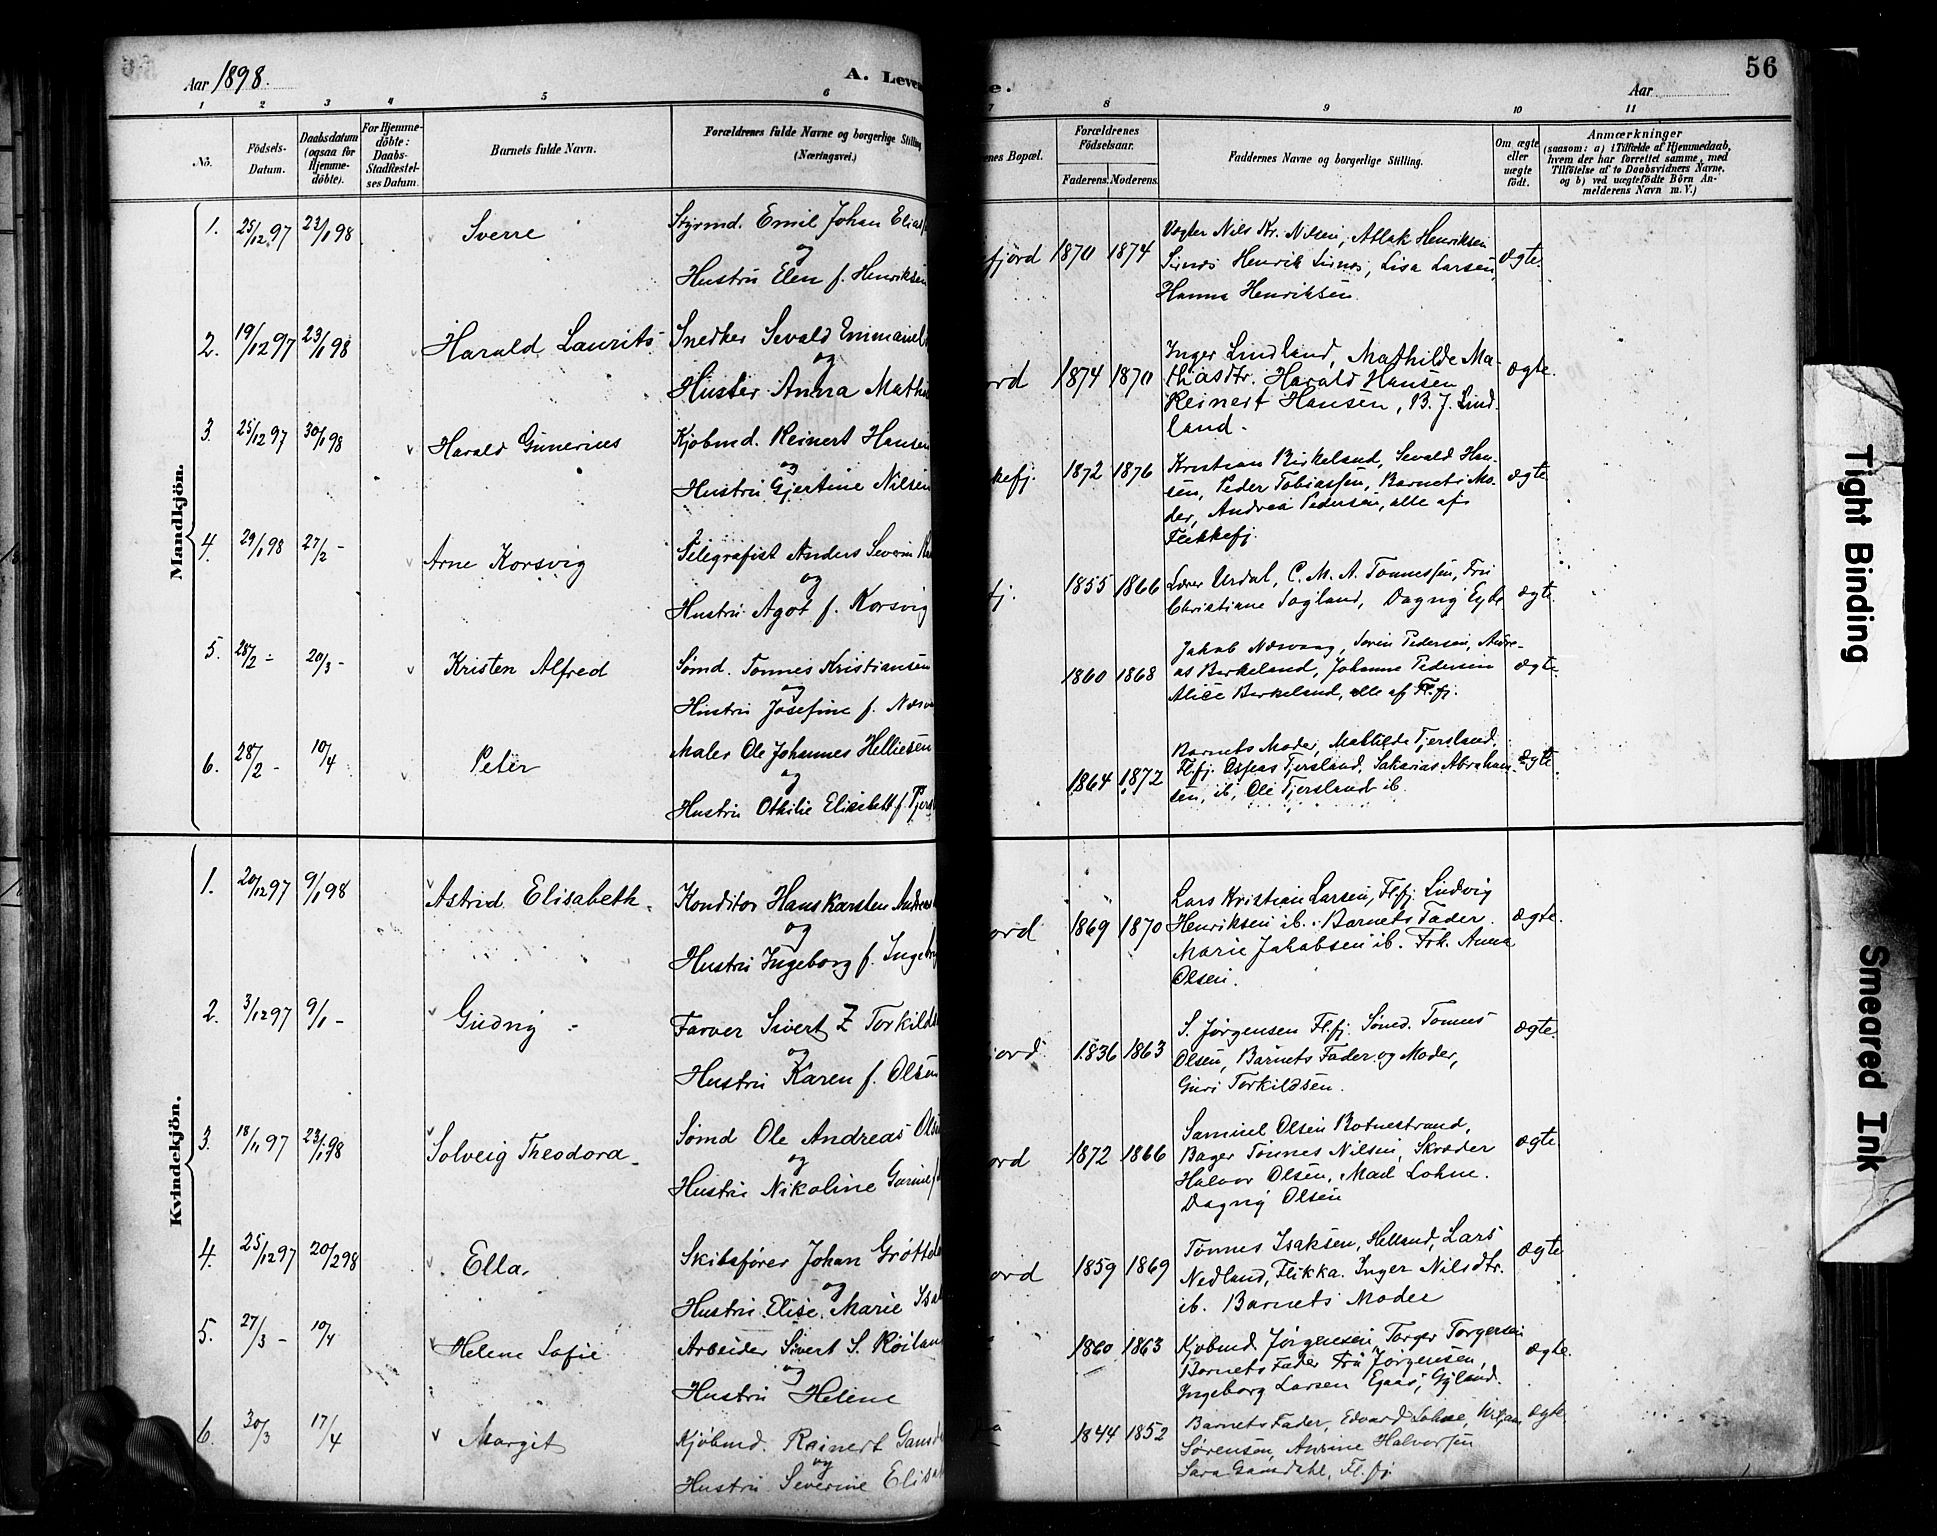 Aar 1898.
A. Leven
e.
56
Aar
1 2 3 4 5 6 7 8 9 10 11
Nò.
Födsels-
Datum.
Daabsdatum
(ogsaa for
Hjemme-
döbte).
For Hjemme-
döbte:
Daabs-
Stadfæstel-
ses Datum.
Barnets fulde Navn.
Forældrenes fulde Navne og borgerlige Stilling
(Næringsvei.)
enes Bopæl.
Forældrenes
Födselsaar.
Faderens. Moderens.
Faddernes Navne og borgerlige Stilling.
Om ægte
eller
uægte
födt.
Anmærkninger
(saasom: a) i Tilfælde af Hjemmedaab,
hvem der har forrettet samme, med
Tilföielse af to Daabsvidners Navne,
og b) ved uægtefödte Börn An-
melderens Navn m. V.)
Mandkjön.
1. 25/12 97 23/1 98 Sverre
Styrmd. Emil Johan Elias
og
Hustru Elen f. Henriksen
fjord 1870 1874
Vægter Nils Kr. Nilsen, Atlak Henriksen
Sirnes Henrik Sirnes, Lisa Larsen,
Hanna Henriksen.
ægte.
2. 19/12 97 23/1 98 Harald Laurits
Snedker Sevald Emmanuel
og
Huster Anna Math
ord 1874 1870
Inger Lindland, Mathilde Ma-
thiasdtr. Harald Hansen
Reinert Hansen, B. J. Lind-
land.
ægte.
3. 25/12 97 30/1 98 Harald Gunerius
Kjøbmd. Reinert Hansen
og
Hustru Gjertine Nilsen
kefj. 1872 1876
Kristian Birkeland, Sevald Han-
sen, Peder Tobiassen, Barnets Mo-
der, Andrea Pedersen, alle af
Flekkefj.
ægte
4. 29/1 98 27/2 - Arne Korsvig
Telegrafist Anders Severin
og
Hustru Agot f. Korsvig
fj. 1855 1866
Lærer Urdal, C. M. A. Tønnessen, Fru
Christiane Sogland, Dagny Eyde
ægte.
5. 28/2 - 20/3 - Kristen Alfred
Sømd. Tønnes Kristiansen
og
Hustru Josefine f. Næsv
1860 1868
Jakob Næsvaag, Søren Pedersen, Andre-
as Birkeland, Johanne Pedersen
Alice Birkeland, alle af Fl.fj.
ægte.
6. 28/2 - 10/4 Peter
Maler Ole Johannes Helliesen
og
Hustru Othilie Elisabeth f. Tjers
1864 1872
Barnets Moder, Mathilde Tjersland,
Fl.fj. Tjersland, Sakarias Abraham-
sen, ib, Ole Tjersland ib.
ægte
Kvindekjön.
1. 20/12 97 9/1 98 Astrid Elisabeth.
Konditor Hans Karsten Andreas
og
Hustru Ingeborg f. Ingeb
ord 1869 1870
Lars Kristian Larsen, Fl.fj. Ludvig
Henriksen ib. Barnets Fader.
Marie Jakobsen ib. Frk. Anna
Olsen.
ægte.
2. 3/12 97 9/1 - Gudny
Farver Sivert Z Torkilds
og
Hustru Karen f. Olsen
jord. 1836 1863
S. Jørgensen Fl.fj. Sømd. Tønnes
Olsen, Barnets Fader og Moder,
Guri Torkildsen.
ægte.
3. 18/11 97 23/1 98 Solveig Theodora.
Sømd Ole Andreas Olse
og
Hustru Nikoline
ord 1872 1866
Samuel Olsen Botnestrand,
Bager Tønnes Nilsen, Skræder
Halvor Olsen, Mad Lohne.
Dagny Olsen
ægte
4. 25/12 97 20/2 98 Ella.
Skibsfører Johan Grøtte
og
Hustru Elise Marie Isak
ord 1859 1869
Tønnes Isaksen, Helland, Lars
Nedland, Flikka. Inger Nilsdtr.
ib. Barnets Moder
ægte
5. 27/3 - 10/4 Helene Sofie
Arbeider Sivert S. Røilan
og
Hustru Helene
1860 1863
Kjøbmd. Jørgensen, Torger Torgersen
Barnets Fader Fru Jørgensen,
Ingeborg Larsen Egaas, Gyland.
ægte.
6. 30/3 17/4 Margit
Kjøbmd. Reinert Gamd
og
Hustru Severine Elisa
1844 1852
Barnets Fader, Edvard Lohne,
Sørensen, Halvorsen
Sara Gamdahl, Fl.fj
ægte.
Tight Binding
Smeared Ink